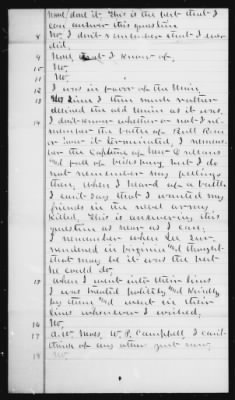 done, don't it. This is the best that I
can answer this question
8 No, I don't remember that I ever
did.
9 None, that I know of,
10 No,
11 No,
12 I was in favor of the Union
13 time I then much rather
desired the old Union as it was.
14 I don't know whether or not I re-
member the battle of Bull Run
or how it terminated, I remem-
ber the Capture of New Orleans
and fall of Vicksburg, but I do
not remember my feelings
then, when I heard of a battle
I can't say that I wanted my
friends in the rebel army
killed, This is answering this
question as near as I can,
I remember when Lee Sur-
rendered in Virginia and thought
that may be it was the best
he could do.
15 When I went into their lines
I was treated politely and kindly
by them and went in their
lines whenever I wished,
16 No,
17 W. P. Campbell I can't
think of any other just now,
18 No